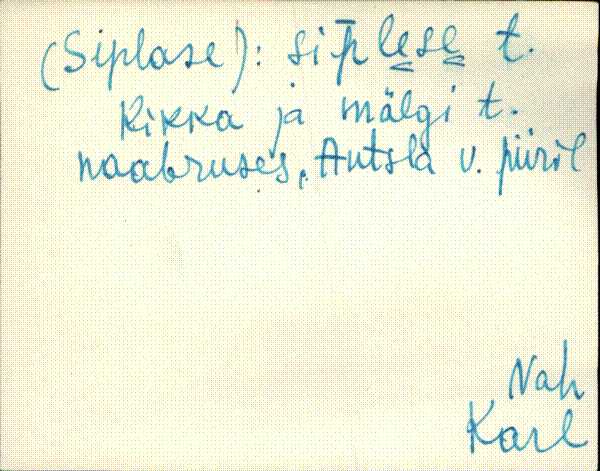 (Siplase): sip̄le̳se̳ t.
Kikka ja mälgi t.
naabruses, Antsla v. piiril
Nah
Karl